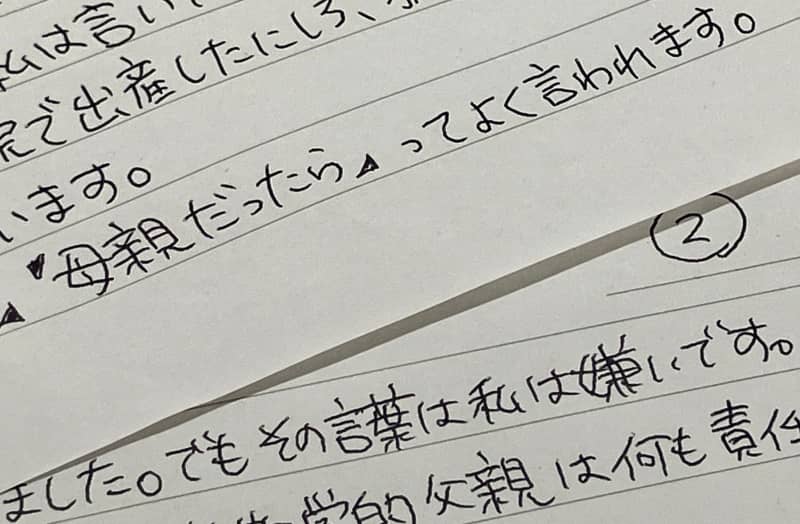 私は言い
院で出産したにしろ、
います。
▲▼母親だったら▲ってよく言われます。
②
ました。でもその言葉は私は嫌いです。
学的父親は何も責任